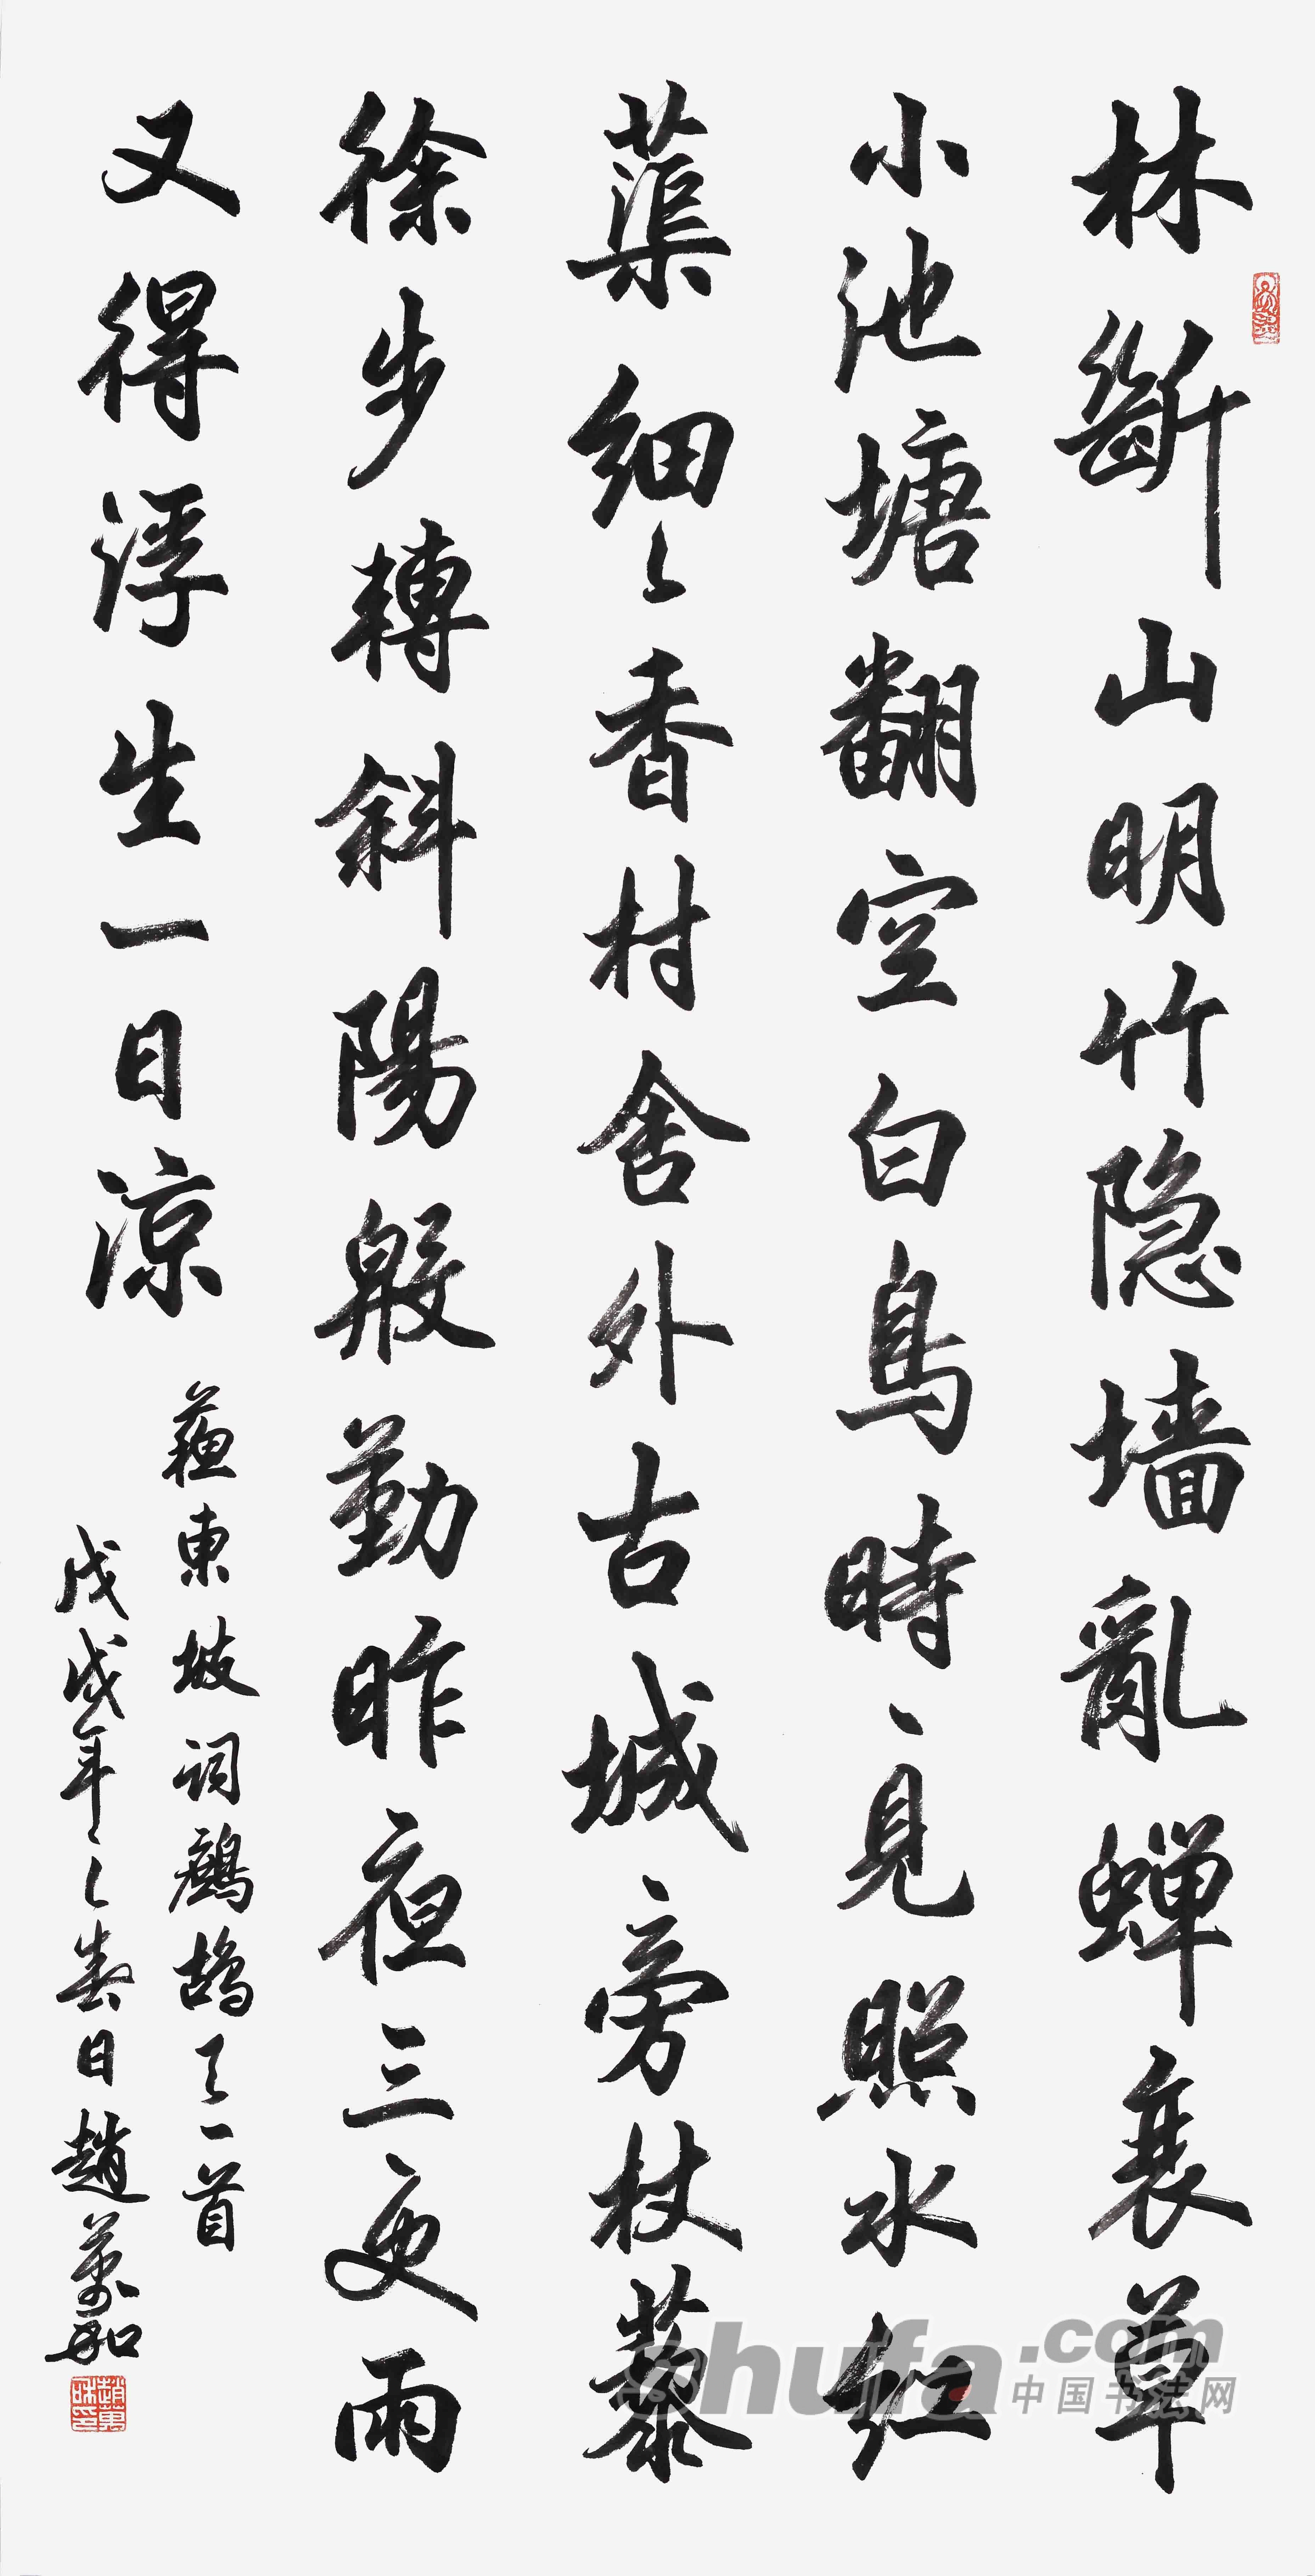 林斷山明竹隐墙亂蝉衰草
小池塘翻空白鳥時ヽ見照水红
蕖细々香村舍外古城旁杖藜
徐步轉斜陽殷勤昨夜三更雨
又得浮生一日涼
蘇東坡词鷓鴣天一首
戊戌年之春日趙萬和
shufa.com
中国书法网